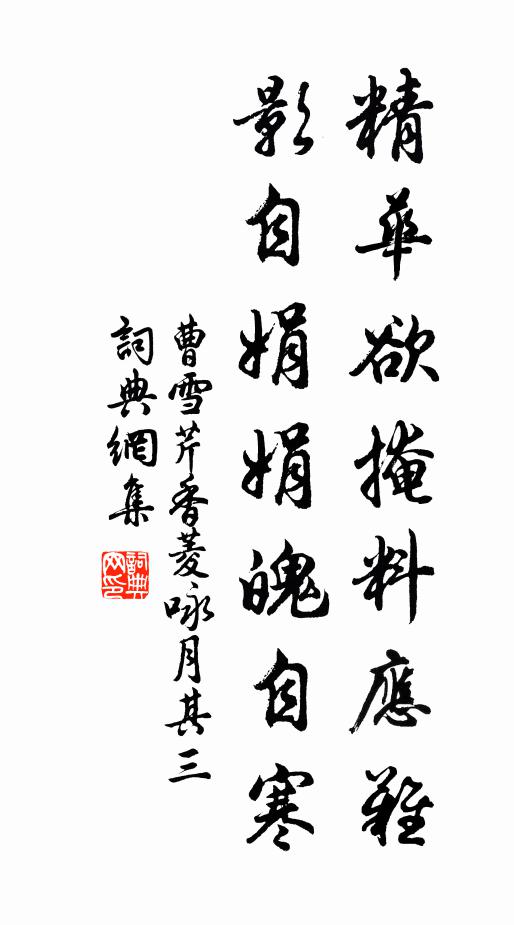 精華欲掩料應難
影自娟娟魄自寒
曹雪芹香菱咏月其三
詞典網集
詞典網印